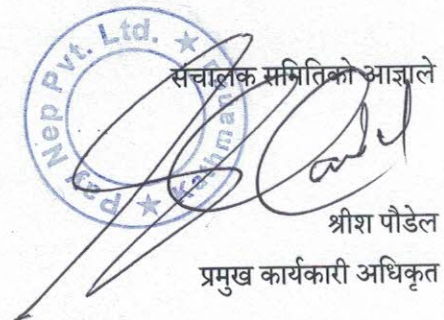 Pay Nep Pvt. Ltd. ★ Kathmandu ★
संचालक समितिको आज्ञाले
श्रीश पौडेल
प्रमुख कार्यकारी अधिकृत